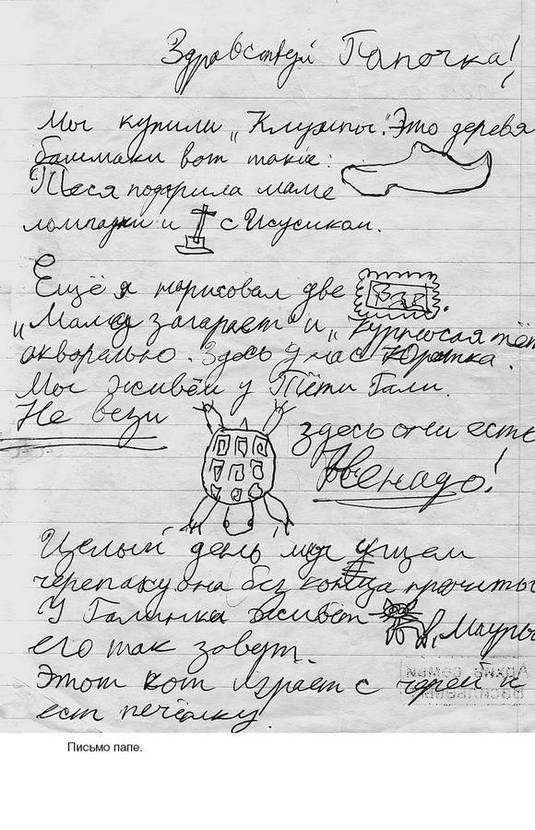 Здравствуй Папочка!
Мы купили „Клумпы". Это деревя
башмаки вот такие:
Песя подарила маме
лампадки и с Исусиком.
Ещё я нарисовал две
„Мама загарает" и „курносая тёт
акварелью. Здесь у нас
Мы живём у Тёти Гали.
Не вези здесь они есть
Ненадо!
Целый день мы ищем
черепаху она без конца прочиты
У Галинки живет „Мауры
его так зовут.
Этот кот играет с черепй и
ест печёнку.
Архив семьи
Васильевых
Письмо папе.